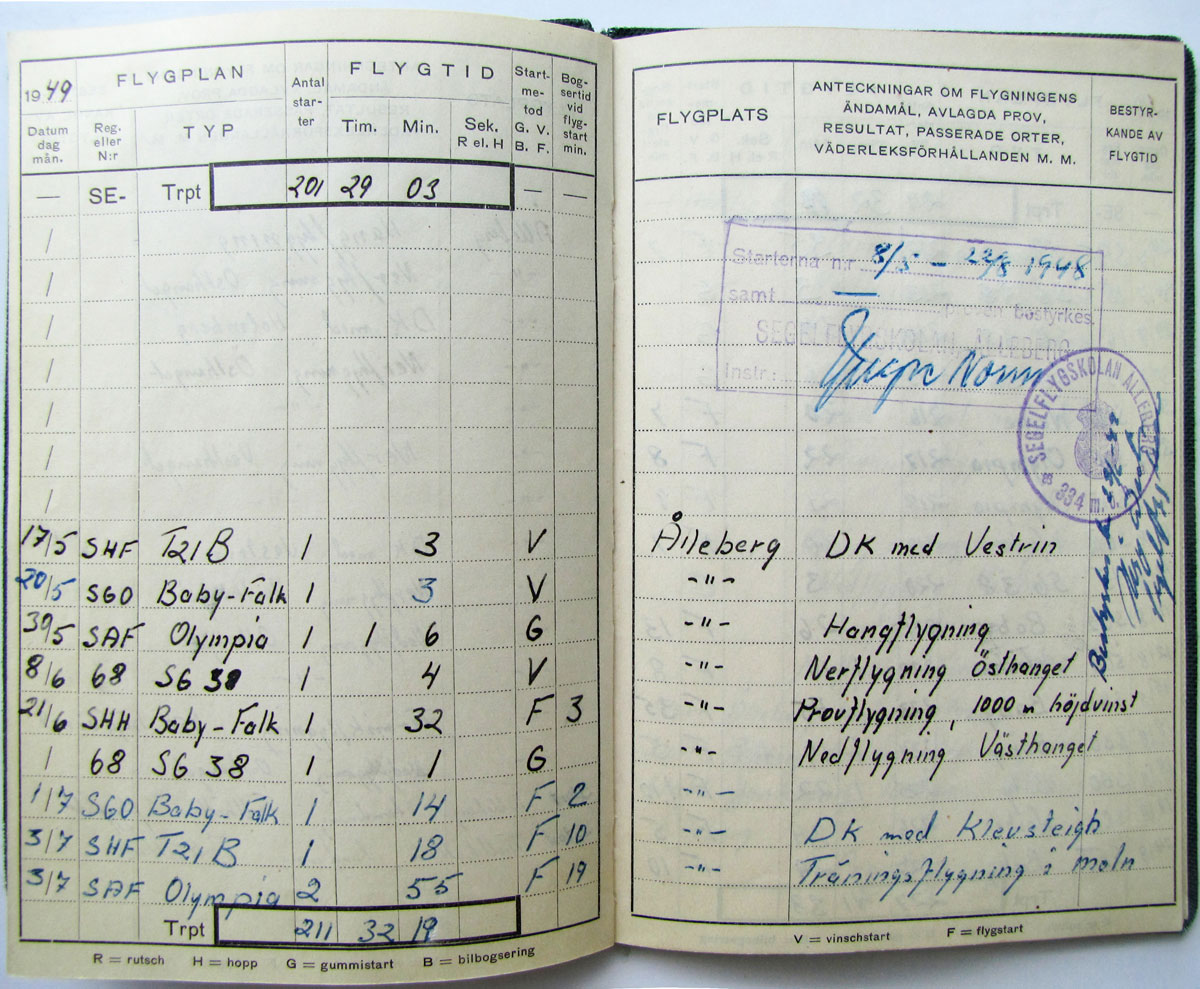 1949
FLYGPLAN
Antal starter
FLYGTID
Startmetod G. V. B. F.
Bogsertid vid flygstart min.
Datum dag mån.
Reg. eller N:r
TYP
Tim.
Min.
Sek. Rel. H
— SE- Trpt 201 29 03 — —
/
/
/
/
/
/
/
17/5 SHF T21B 1 3 V
20/5 SGO Baby-Falk 1 3 V
SAF Olympia 1 1 6 G
8/6 68 SG 38 1 4 V
21/6 SHH Baby-Falk 1 32 F 3
/ 68 SG 38 1 1 G
1/7 SGO Baby-Falk 1 14 F 2
3/7 SHF T21B 1 18 F 10
3/7 SAF Olympia 2 55 F 19
Trpt 211 32 19
R = rutsch H = hopp G = gummistart B = bilbogsering
FLYGPLATS
ANTECKNINGAR OM FLYGNINGENS
ÄNDAMÅL, AVLAGDA PROV,
RESULTAT, PASSERADE ORTER,
VÄDERLEKSFÖRHÅLLANDEN M. M.
BESTYRKANDE AV FLYGTID
Starterna n:r 8/5 – 22/8 1948
samt — bestyrkes.
SEGELFLYGSKOLAN ÅLLEBERG
Instr.:
SEGELFLYGSKOLAN ÅLLEBERG
334 m. ö. h.
Ålleberg DK med Vestrin
-"-
-"- Hangflygning
-"- Nerflygning Östhanget
-"- Provflygning, 1000 m höjdvinst
-"- Nedflygning Västhanget
-"-
-"- DK med Klevsteigh
-"- Träningsflygning i moln
V = vinschstart F = flygstart